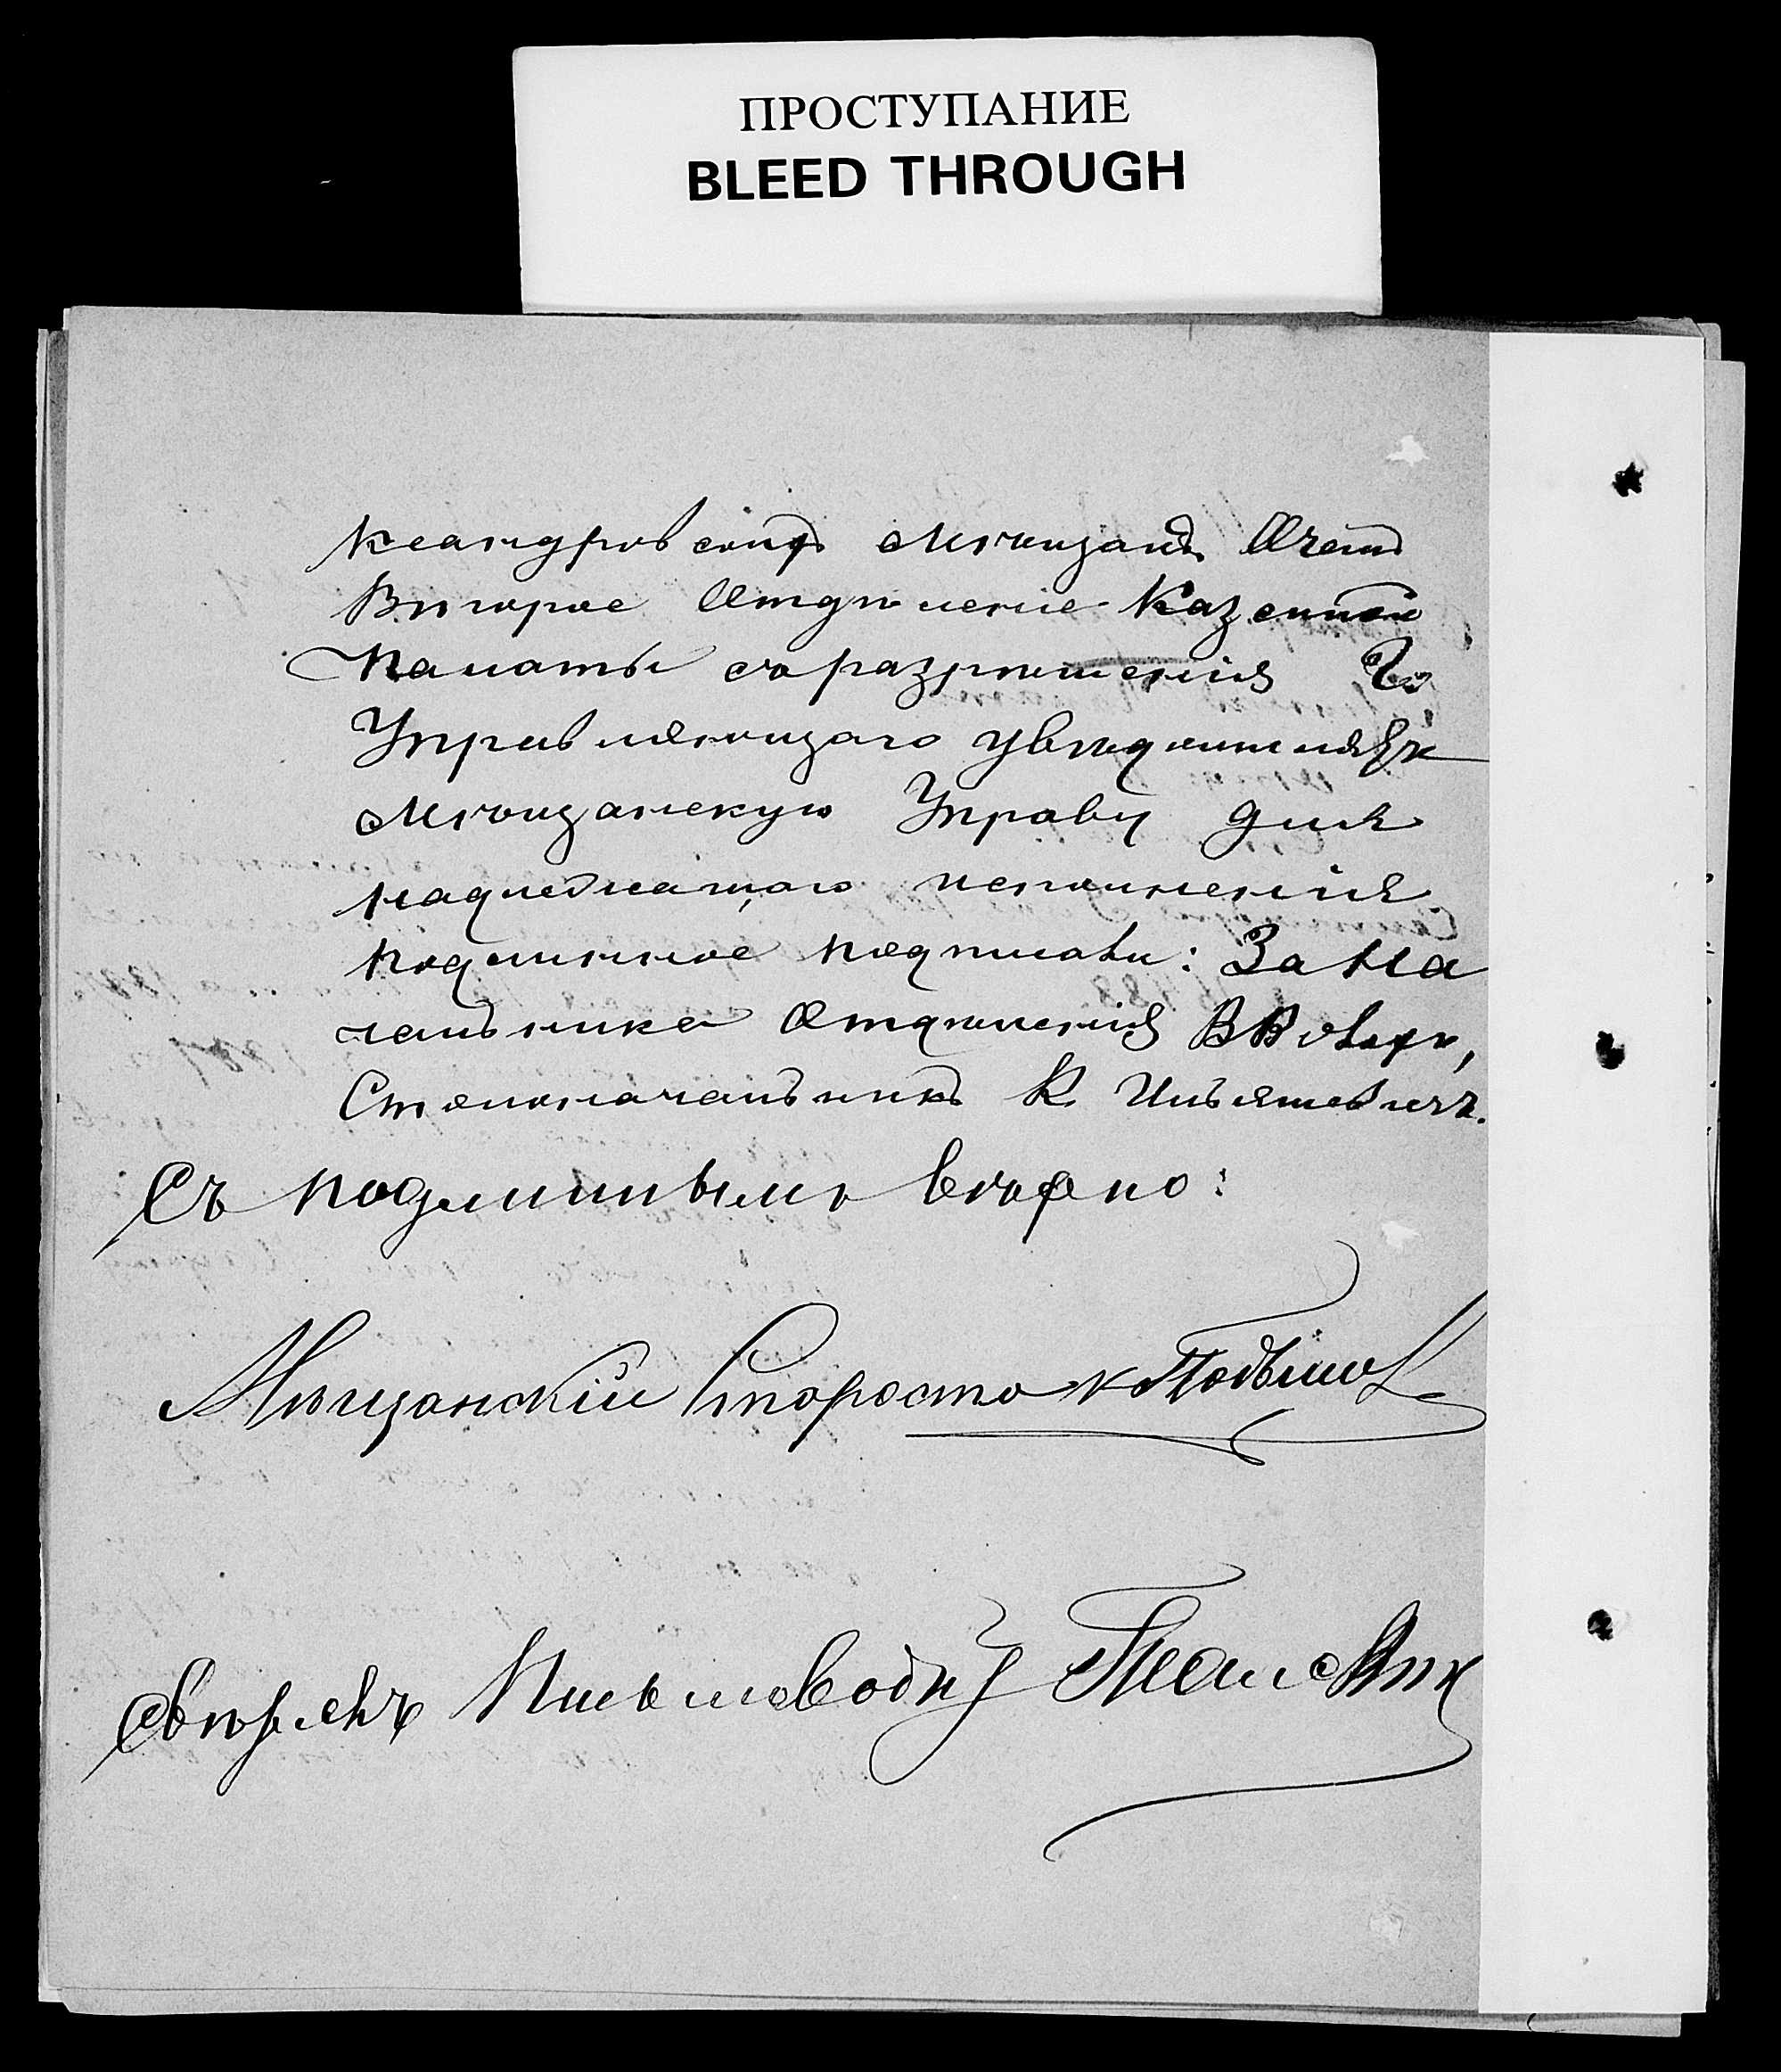 ПРОСТУПАНИЕ
BLEED THROUGH
ксандровскихъ Мѣщанъ
Второе Отдѣленіе Казенной
Палаты съ разрѣшенія Го
Управляющаго увѣдомляетъ
Мѣщанскую Управу для
надлежащаго исполненія
подлинное подписали: За На
чальника Отдѣленія
Столоначальникъ К. Ильяшевичъ.
Съ подлиннымъ вѣрно:
Мѣщанскій Староста
Свѣрялъ Письмоводит